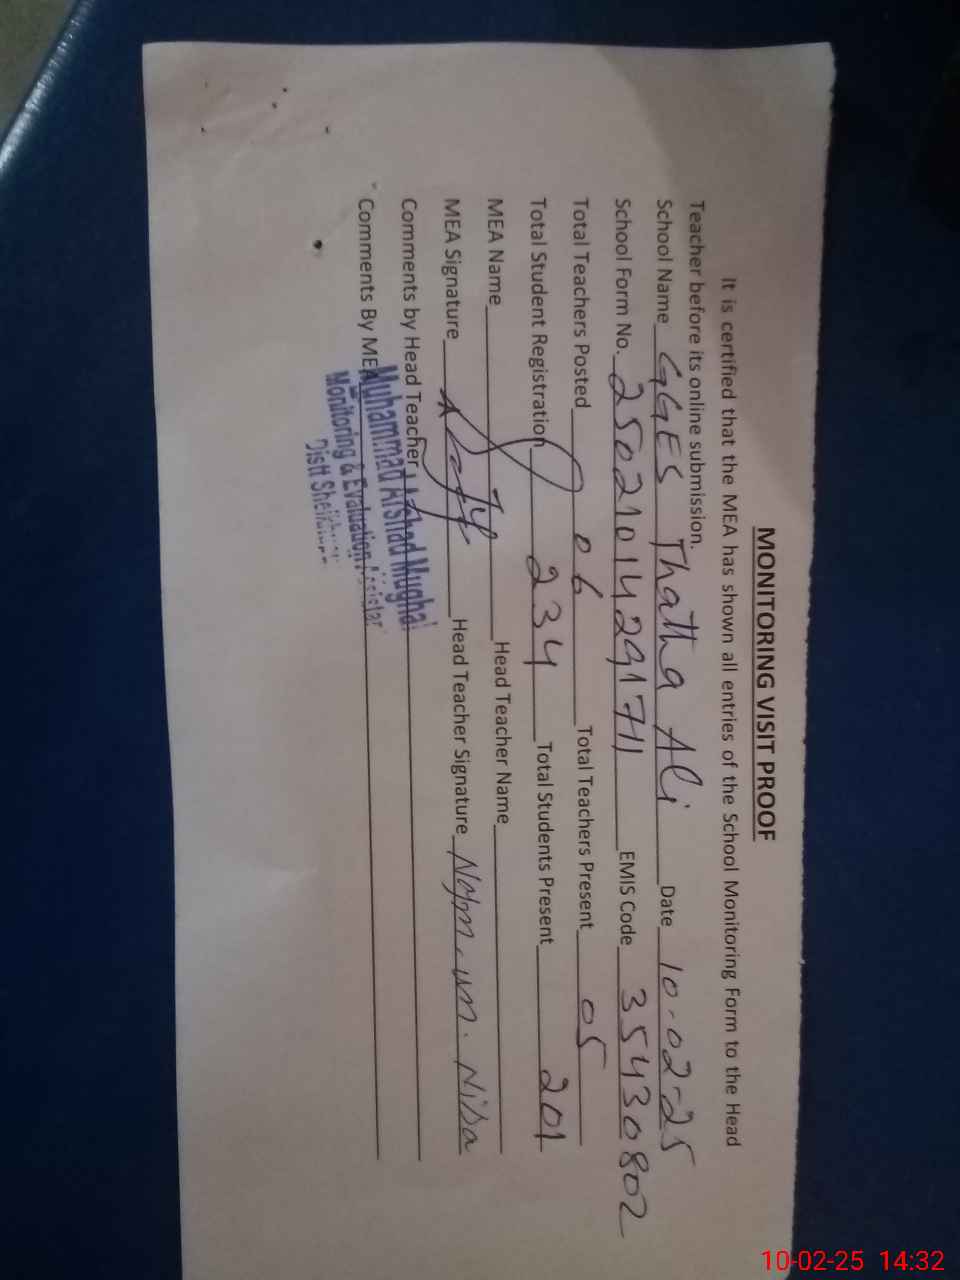 MONITORING VISIT PROOF
It is certified that the MEA has shown all entries of the School Monitoring Form to the Head
Teacher before its online submission.
School Name GGES Thatha Ali Date 10-02-25
School Form No. 25021014291711 EMIS Code 35430802
Total Teachers Posted 06 Total Teachers Present 05
Total Student Registration 234 Total Students Present 201
MEA Name Head Teacher Name
MEA Signature Head Teacher Signature Najm.un.Nisa
Comments by Head Teacher
Comments By MEA
Muhammad Arshad Mughal
Monitoring & Evaluation Assistan
Distt
10-02-25 14:32